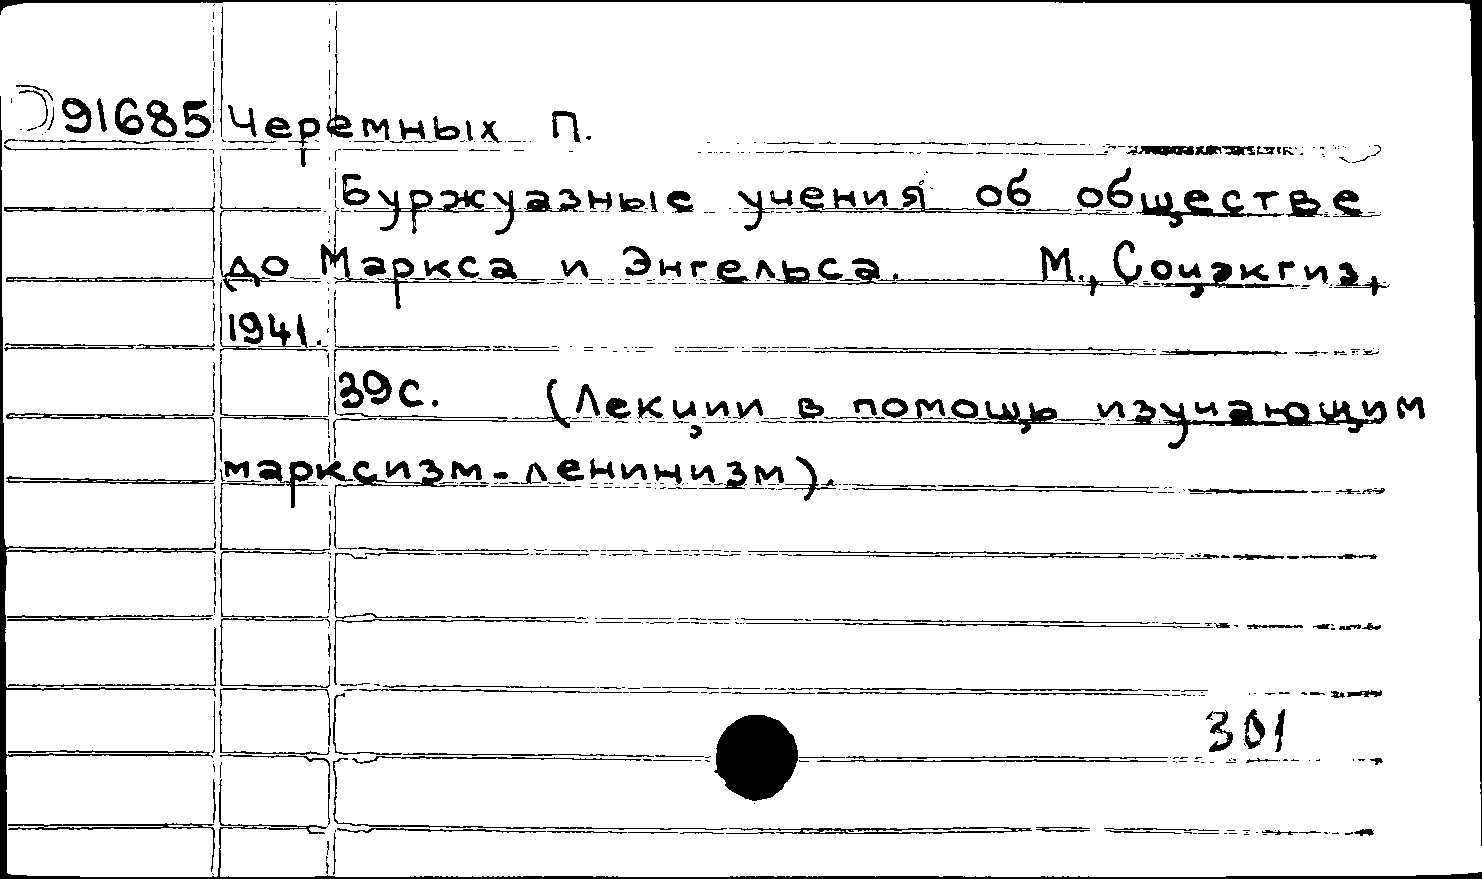 91685 Черемных П.
Буржуазные учения об обществе
до Маркса и Энгельса. М., Соцэкгиз,
1941.
39 с. (Лекции в помощь изучающим
марксизм-ленинизм).
301